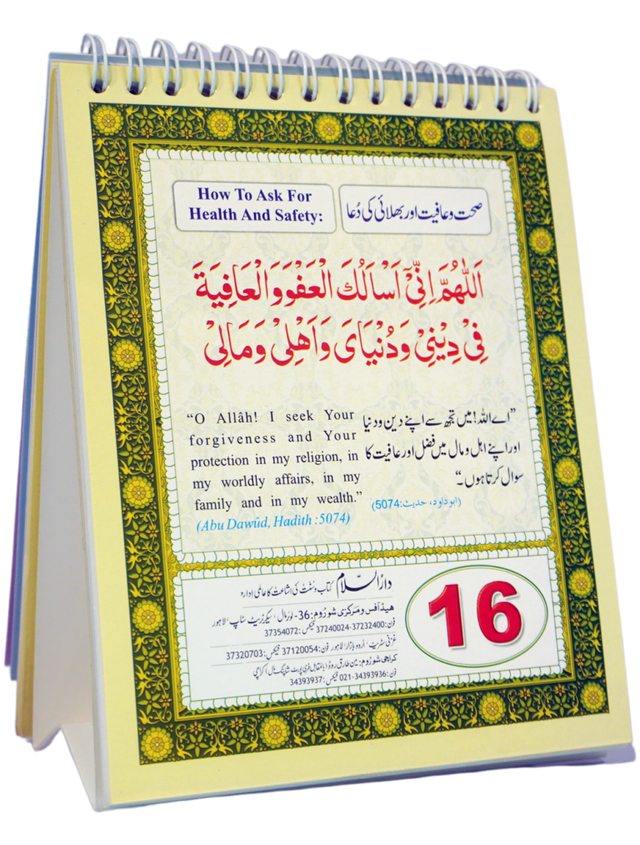 How To Ask For
Health And Safety:
صحت و عافیت اور بھلائی کی دُعا
اَللّٰهُمَّ اِنِّیْٓ اَسْاَلُكَ الْعَفْوَ وَالْعَافِیَةَ
فِیْ دِیْنِیْ وَدُنْیَایَ وَاَهْلِیْ وَمَالِیْ
“O Allâh! I seek Your
forgiveness and Your
protection in my religion, in
my worldly affairs, in my
family and in my wealth.”
(Abu Dawūd, Hadith :5074)
”اے اللہ! میں تجھ سے اپنے دین و دنیا
اور اپنے اہل و مال میں فضل اور عافیت کا
سوال کرتا ہوں۔“
(ابوداود، حدیث:5074)
دارُالسّلام کتاب و سُنّت کی اشاعت کا عالمی ادارہ
ھیڈ آفس و مرکزی شوروم: 36- لوئر مال، سیکرٹریٹ سٹاپ، لاہور
فون: 37232400-37240024 فیکس: 37354072
غزنی سٹریٹ، اُردو بازار، لاہور فون: 37120054 فیکس: 37320703
کراچی شوروم: مین طارق روڈ، بالمقابل فری پورٹ شاپنگ مال، کراچی
فون: 021-34393936 فیکس: 34393937
16